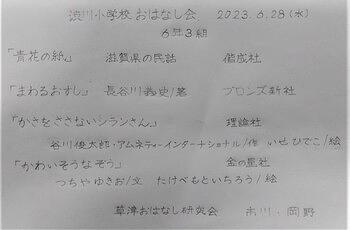 渋川小学校 おはなし会 2023.6.28(水)
6年3組
「青花の紙」 滋賀県の民話 偕成社
「まわるおすし」 長谷川義史/著 ブロンズ新社
「かさをささないシランさん」 理論社
谷川俊太郎・アムネスティーインターナショナル/作 いせひでこ/絵
「かわいそうなぞう」 金の星社
つちやゆきお/文 たけべもといちろう/絵
草津おはなし研究会 市川・岡野